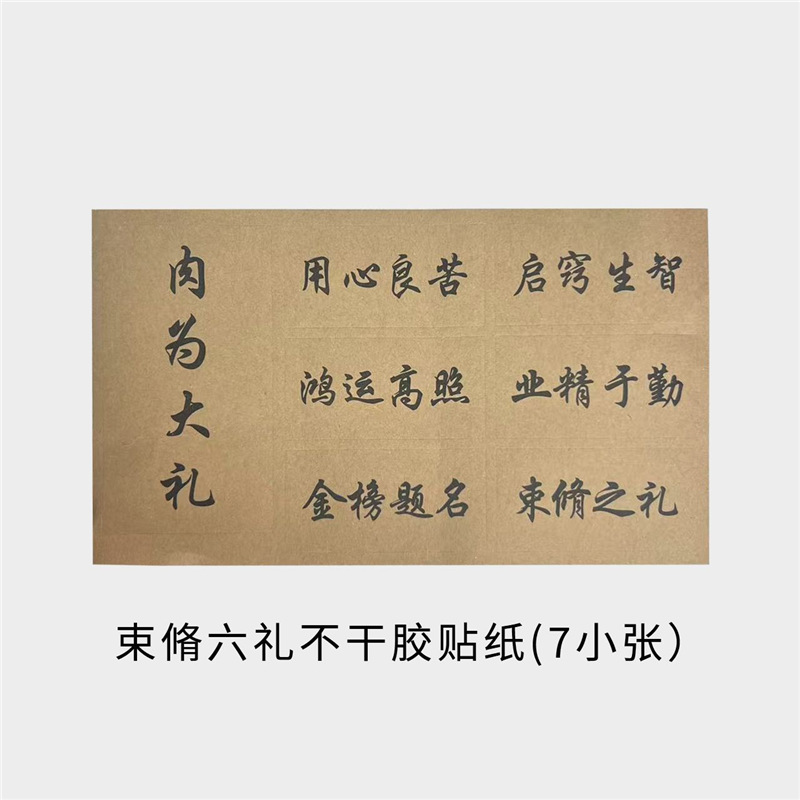 肉为大礼
用心良苦
启窍生智
鸿运高照
业精于勤
金榜题名
束脩之礼
束脩六礼不干胶贴纸(7小张)